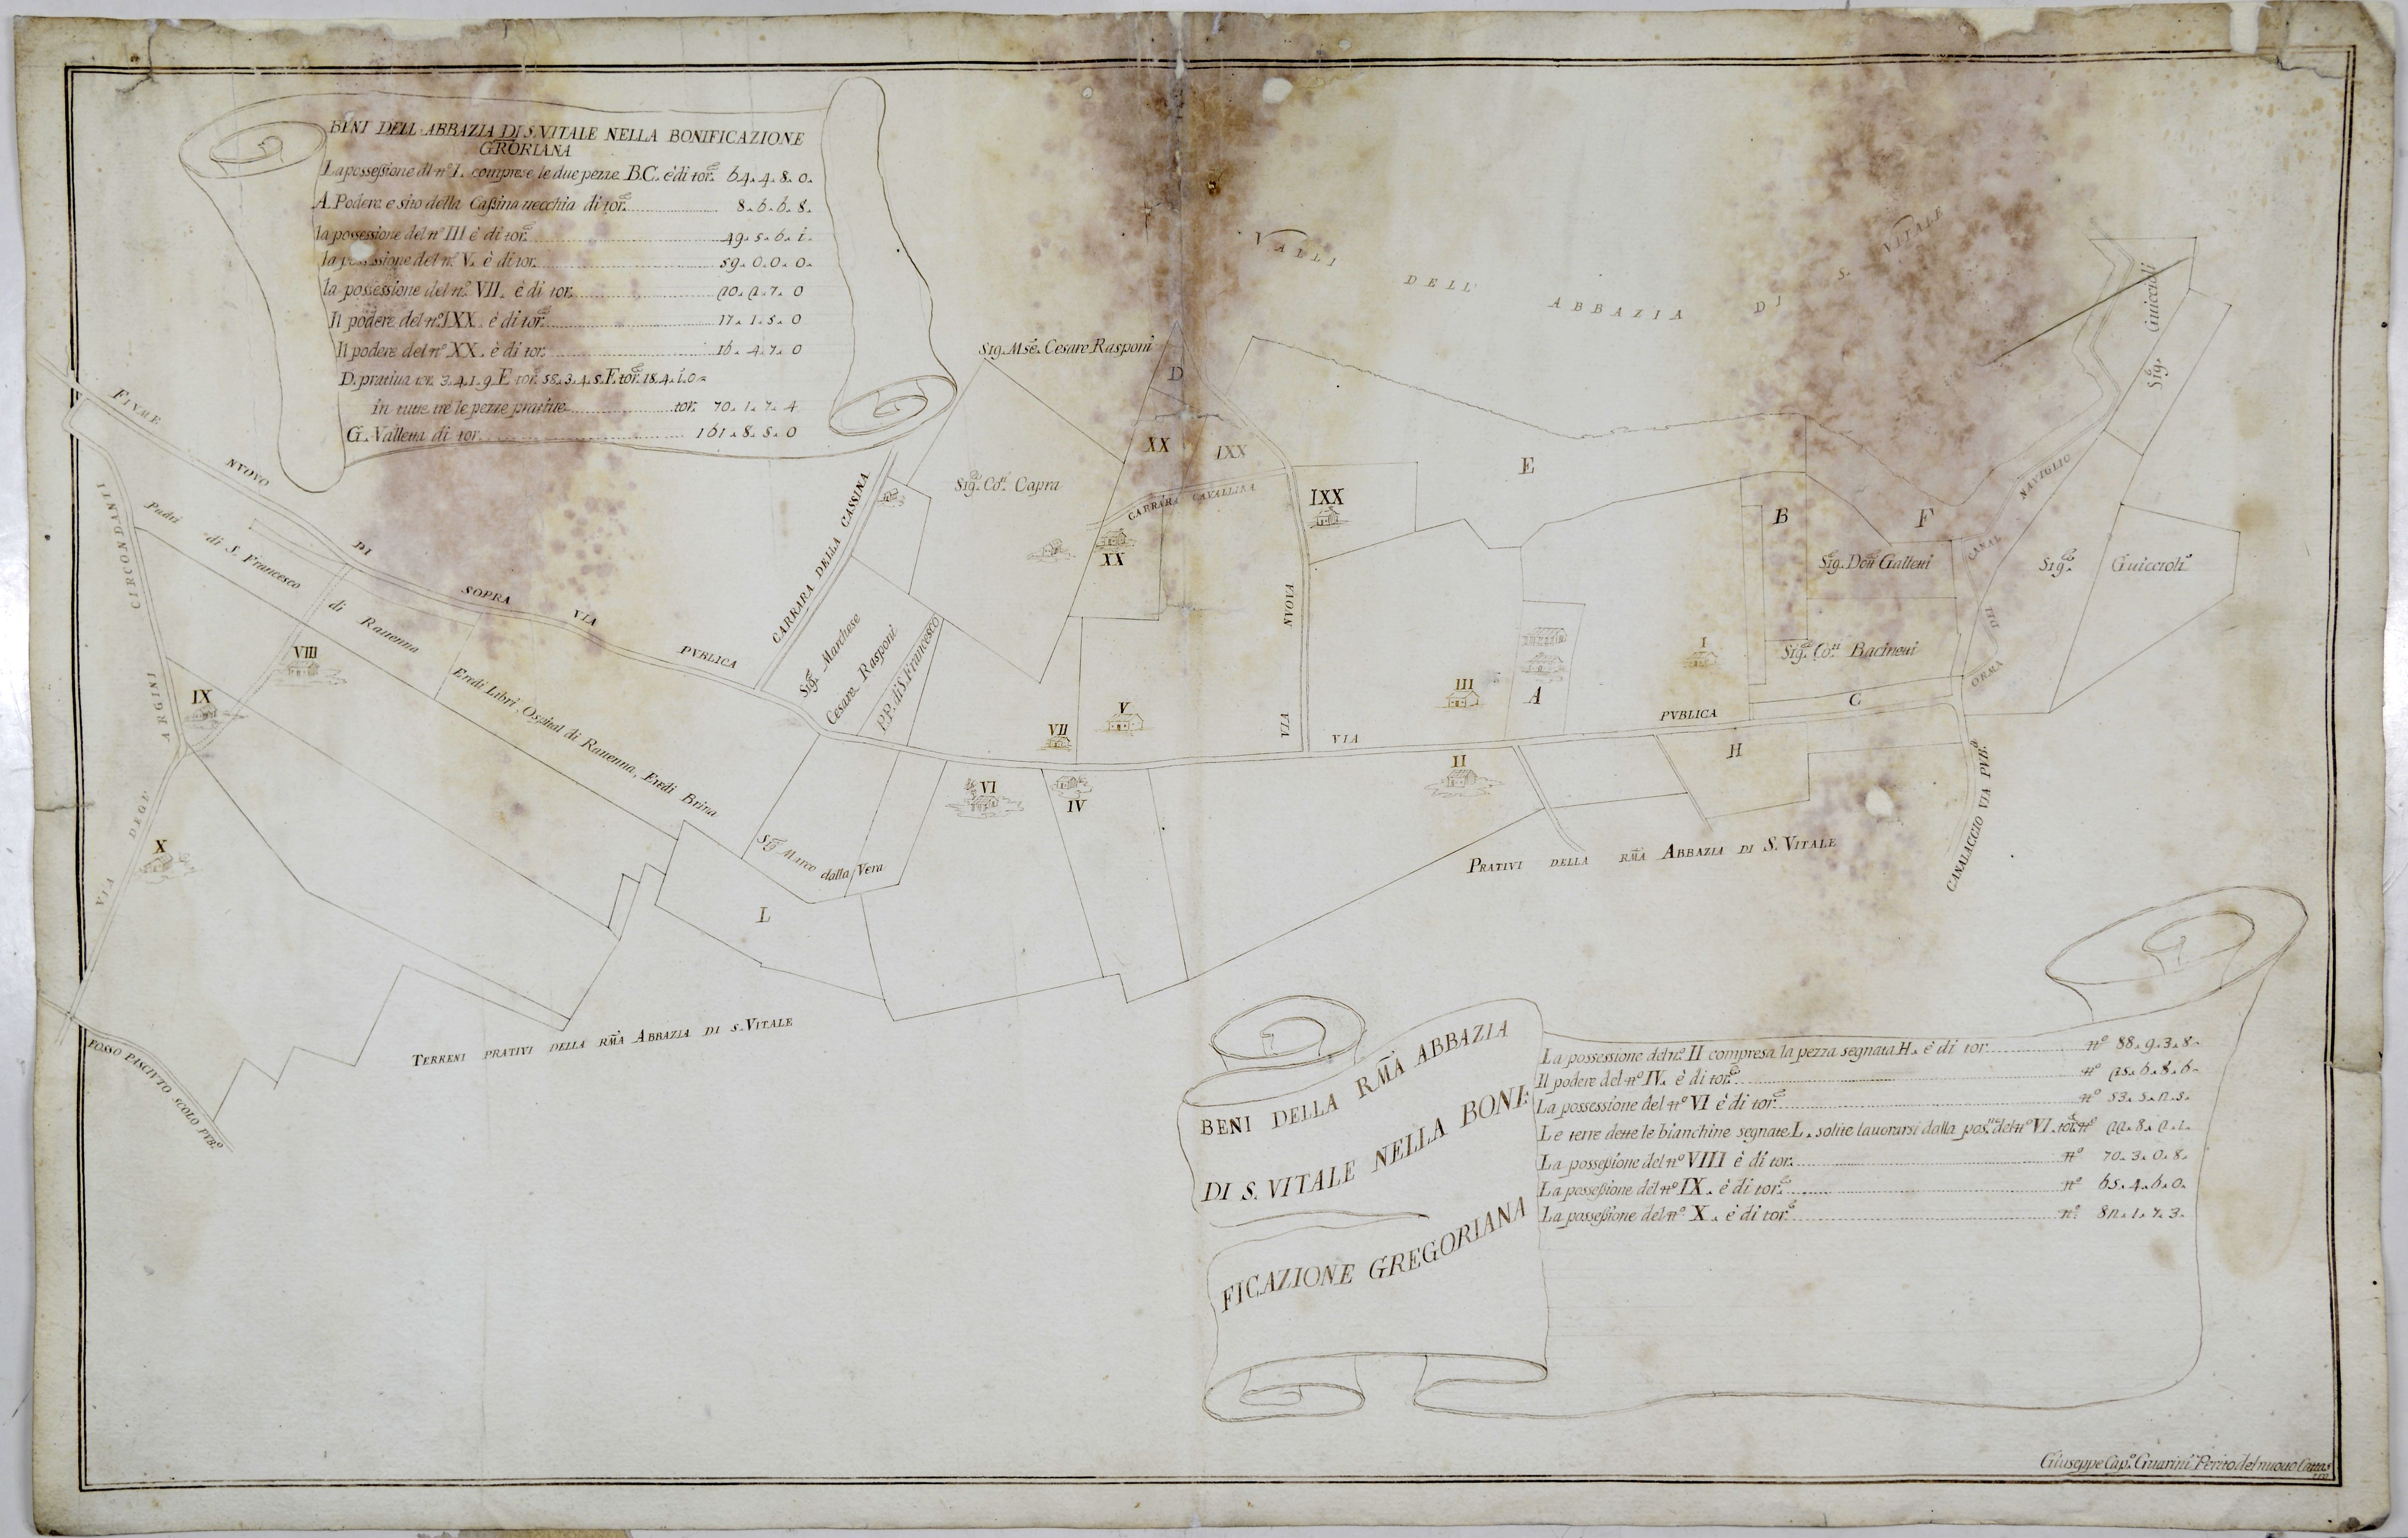 BENI DELL ABBAZIA DI S. VITALE NELLA BONIFICAZIONE
GRORIANA
La possessione di nº I. comprese le due pezze B.C. è di tor.^e 64. 4. 8. 0.
A. Podere e sito della Cassina vecchia di tor.^e 8. 6. 6. 8.
la possessione del nº III è di tor.^e 49. 5. 6. i.
la possessione del nº V. è di tor. 59. 0. 0. 0.
la possessione del nº VII. è di tor.
Il podere del nº IXX. è di tor.^e 17. 1. 5. 0
Il podere del nº XX. è di tor. 16. 4. 7. 0
D. pratiua tor. 3. 4. 1. 9. E tor.^e 58. 3. 4. 5. F tor.^e 18. 4. i. 0
in tutte tre le pezze pratiue tor. 70. 1. 7. 4
G. Valletta di tor. 161. 8. 5. 0
VALLI DELL' ABBAZIA DI S. VITALE
Sig.^e Guiccioli
Sig. Mse. Cesare Rasponi
D
FIVME NVOVO DI SOPRA VIA PVBLICA
XX
IXX
Sig.^e Co.^ti Capra
CARRARA CAVALLINA
IXX
E
B
F
NAVIGLIO
CANAL
DI
ORMA
CARRARA DELLA CASSINA
XX
Sig.^e Don Galleni
Sig.^e Guiccioli
ARGINI CIRCONDANTI
Padri di S. Francesco di Rauenna
VIII
IX
NVOVA
VIA
Sig.^e Marchese
Cesare Rasponi
P.P. di S. Francesco
I
Sig.^e Co.^ti Bacineni
Eredi Libri, Ospital di Rauenna, Eredi Brina
III
A
C
V
VII
VIA PVBLICA
H
II
VI
IV
VIA DEGL'
X
Sig.^e Marco dalla Vera
L
PRATIVI DELLA RMA ABBAZIA DI S. VITALE
CANALACCIO VIA PVB.^a
TERRENI PRATIVI DELLA RMA ABBAZIA DI S. VITALE
FOSSO PASCIVTO SCOLO PVB.º
BENI DELLA RMA ABBAZIA
DI S. VITALE NELLA BONI
FICAZIONE GREGORIANA
La possessione del nº II compresa la pezza segnata H. è di tor. nº 88. 9. 3. 8.
Il podere del nº IV. è di tor.^e nº
La possessione del nº VI è di tor.^e nº
Le terre dette le bianchine segnate L. solite lauorarsi dalla pos.^ne del nº VI. tor.^e nº
La possessione del nº VIII è di tor. nº 70. 3. 0. 8.
La possessione del nº IX. è di tor.^e nº 65. 4. 6. 0.
La possessione del nº X. è di tor.^e nº
Giuseppe Cap.º Guarini Perito del nuouo Catas
tro